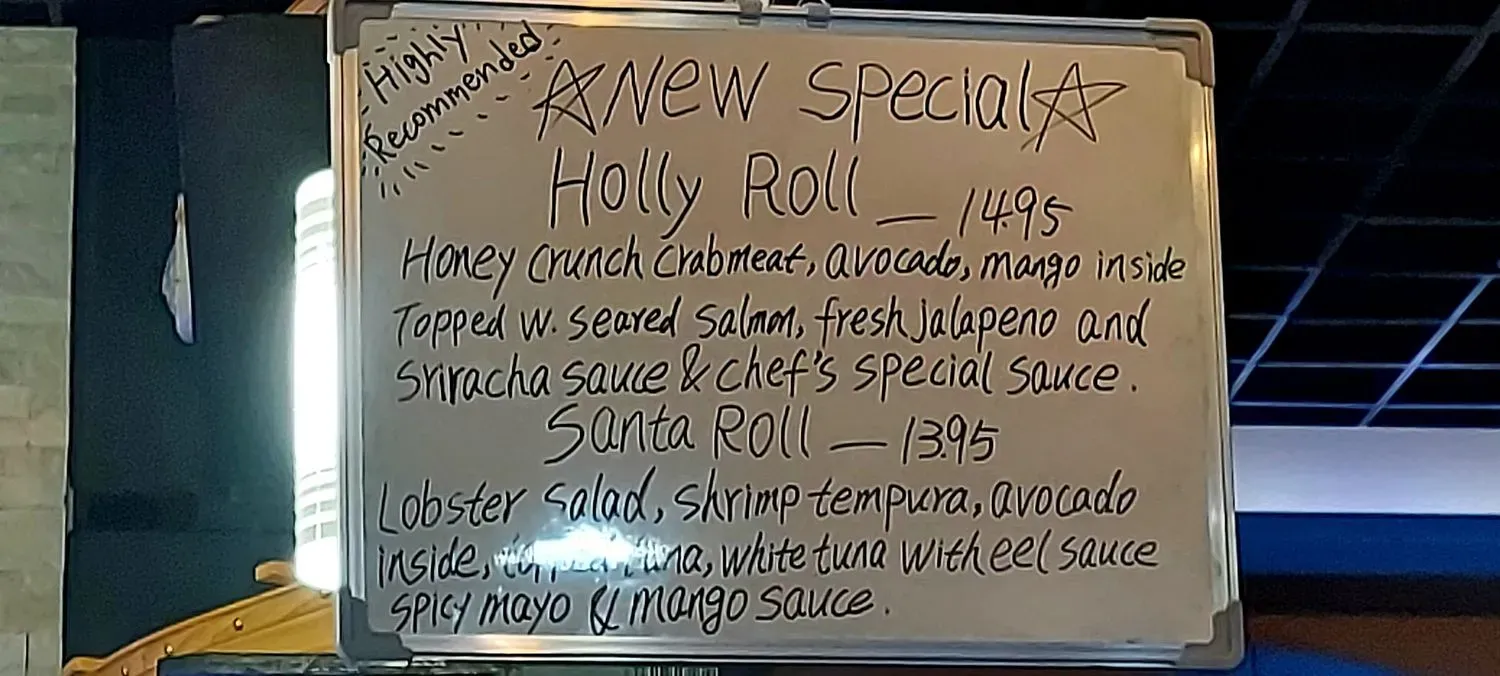 Highly
Recommended
New Special
Holly Roll — 14.95
Honey crunch crabmeat, avocado, mango inside
Topped w. seared salmon, fresh jalapeno and
Sriracha sauce & chef's special sauce.
Santa Roll — 13.95
Lobster salad, shrimp tempura, avocado
inside, tuna, white tuna with eel sauce
spicy mayo & mango sauce.